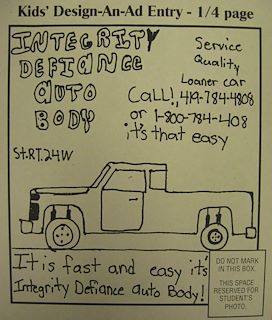 Kids' Design-An-Ad Entry - 1/4 page
INTEGRITY
DEFIANCE
AUTO
BODY
Service
Quality
Loaner car
Call!, 419-784-4808
or 1-800-784-408
it's that easy
St.RT.24W
It is fast and easy it's
Integrity Defiance auto Body!
DO NOT MARK
IN THIS BOX.
THIS SPACE
RESERVED FOR
STUDENT'S
PHOTO.